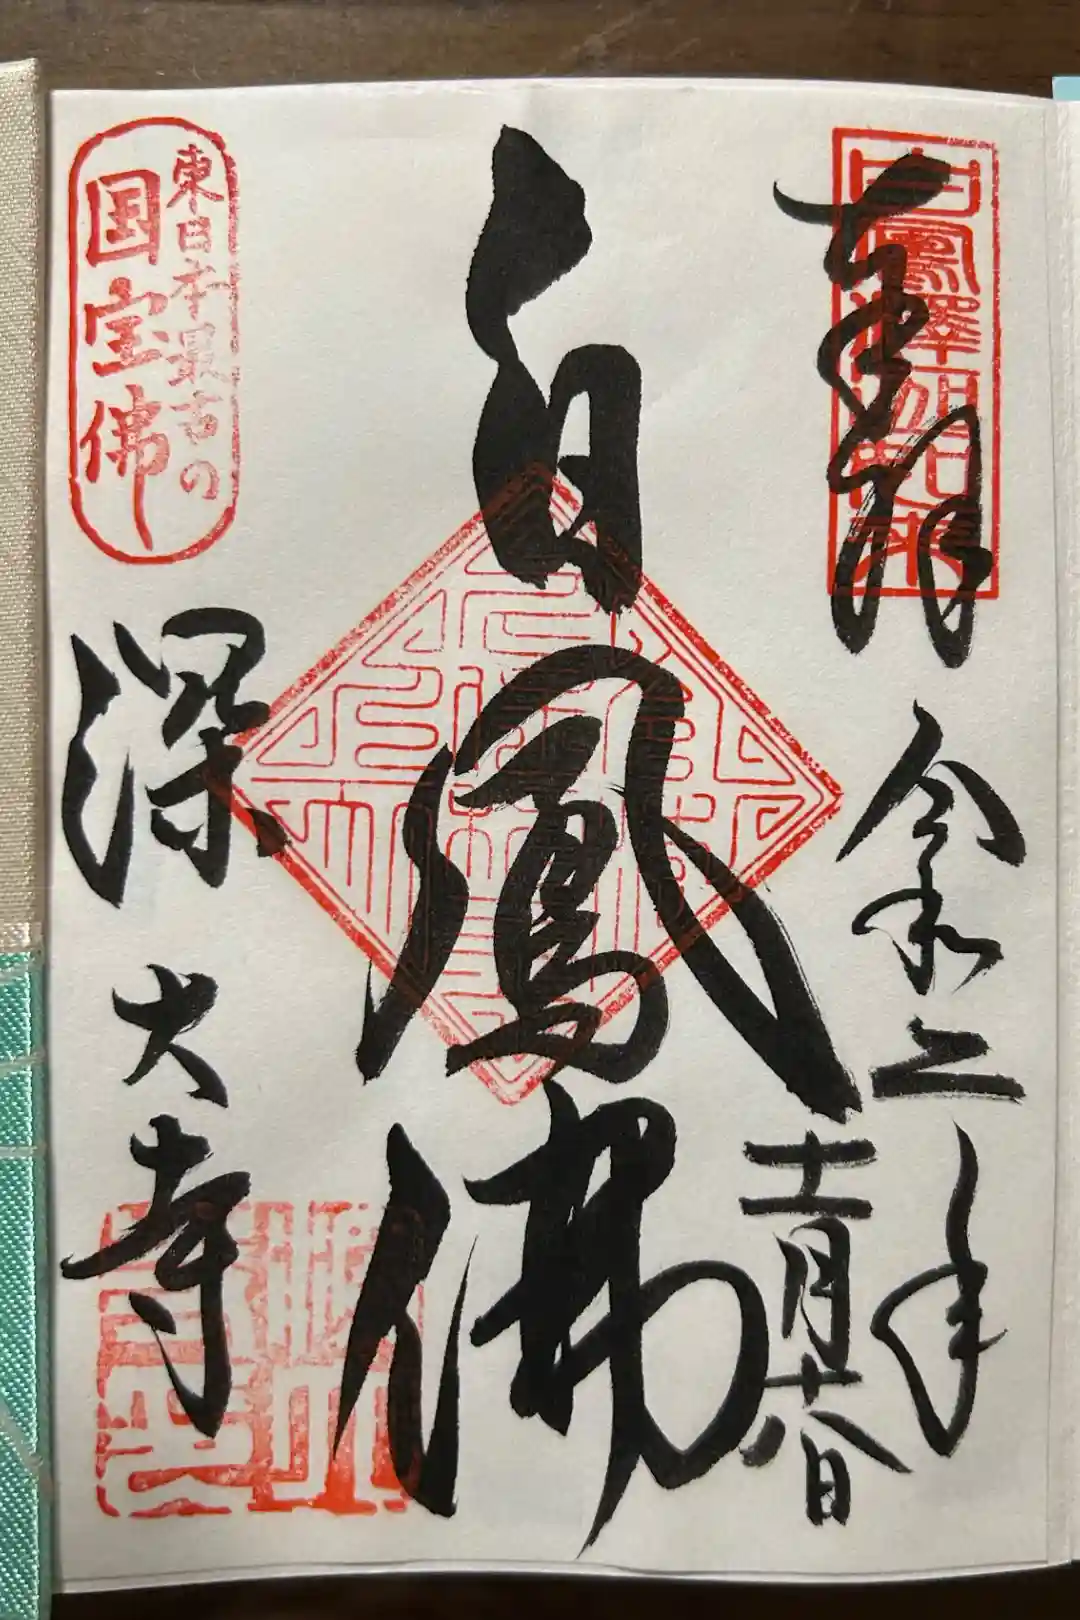 奉拝
白鳳釈迦如来
令和二年
十一月十八日
白鳳佛
東日本最古の
国宝佛
深大寺